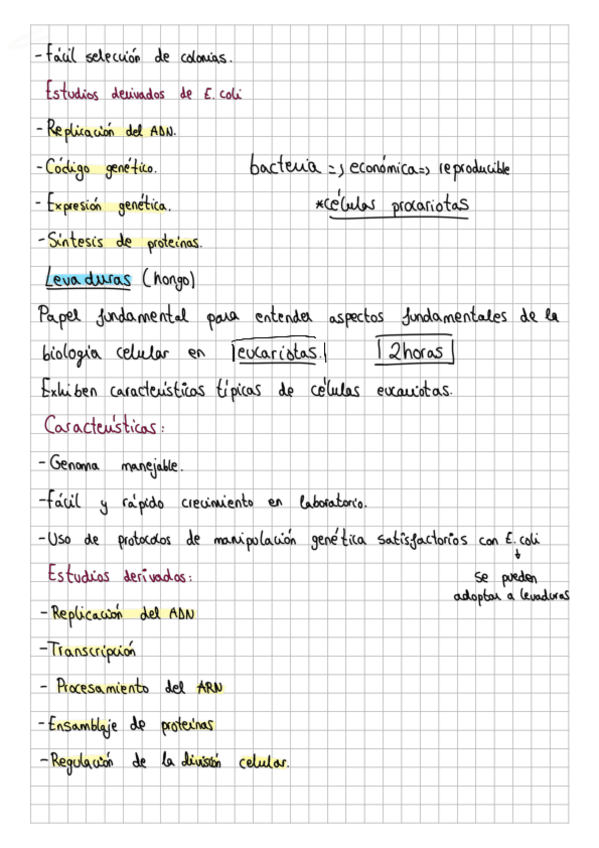 - Fácil selección de colonias.
Estudios derivados de E. coli
- Replicación del ADN.
- Código genético.
bacteria => económica => reproducible
- Expresión genética.
*células procariotas
- Síntesis de proteínas.
Levaduras (hongo)
Papel fundamental para entender aspectos fundamentales de la
biología celular en eucariotas. 2 horas
Exhiben características típicas de células eucariotas.
Características:
- Genoma manejable.
- Fácil y rápido crecimiento en laboratorio.
- Uso de protocolos de manipulación genética satisfactorios con E. coli
↓
Estudios derivados:
se pueden
adoptar a levaduras
- Replicación del ADN
- Transcripción
- Procesamiento del ARN
- Ensamblaje de proteínas
- Regulación de la división celular.